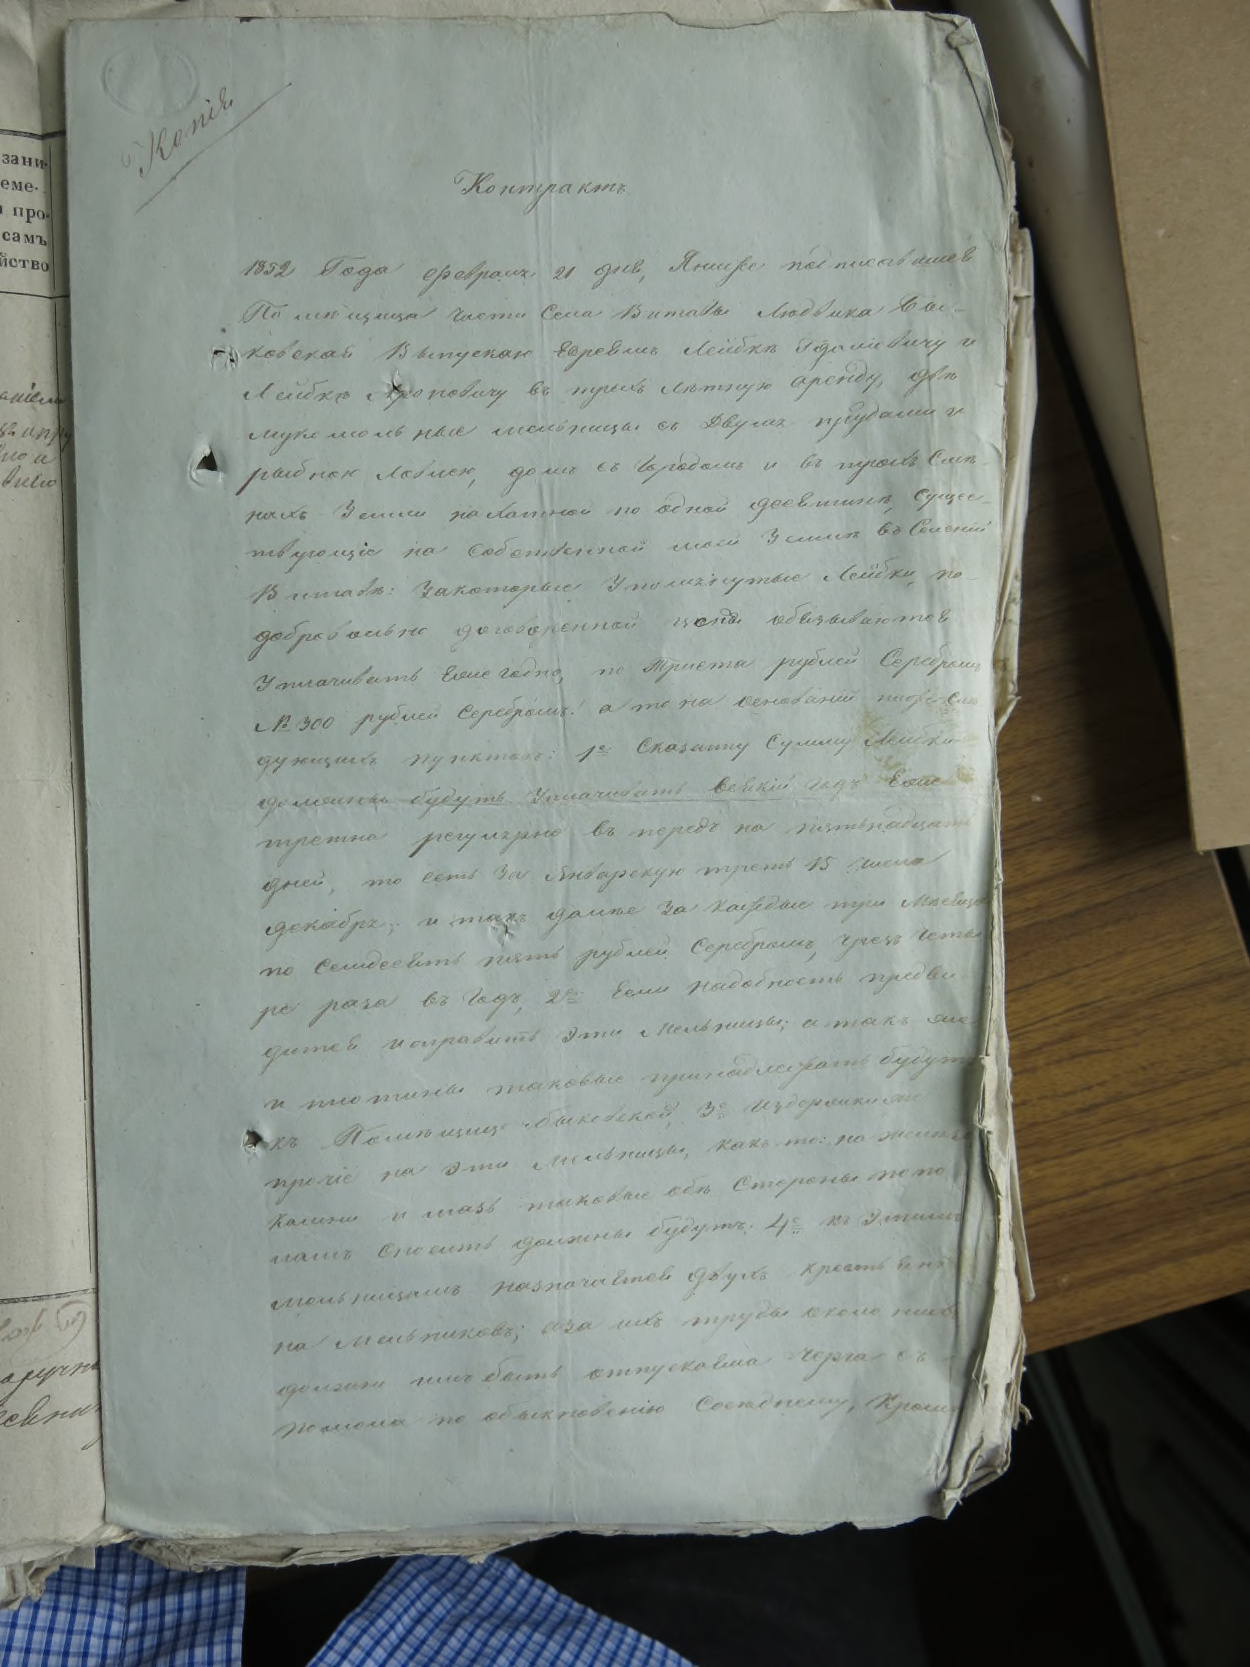 зани-
еме-
про-
самъ
йство
Копія
Контрактъ
1852 Года февраля 21 дня, Я нижеподписавшаяся
Помѣщица части Села Витавы Людвика Бы-
ковская Выпускаю Евреямъ Лейбкѣ Гдалиовичу и
Лейбкѣ въ трехъ лѣтную аренду, двѣ
мукомольные мельницы съ Двумя прудами и
рыбною Ловлею, домъ съ городомъ и въ трехъ Смѣ-
нахъ Земли пахатной по одной десятинѣ, сущес-
твующіе на Собственной моей Землѣ въ Селеніи
Витавѣ: За которые Упомянутые Лейбки, по
добровольно договоренной цены обязываются
Уплачивать Ежегодно, по Триста рублей Серебромъ
№ 300 рублей Серебромъ: а то на основаніи ниже слѣ
дующихъ пунктахъ: 1е Сказанну Сумму Лейбки
должны будутъ Уплачивать всякій годъ Еже
третно регулярно въ передъ на пятьнадцать
дней, то есть За Январскую треть 15 числа
декабря; и такъ далѣе За каждые три Мѣсяца
по Семдесятъ пять рублей Серебромъ, чрезъ четы
ре раза въ Годъ, 2е Если надобность предви
дится исправить Эти Мельницы; а такъ же
и плотины таковые принадлежать будутъ
къ Помѣщице Быковской, 3е Издержки же
прочіе на Эти Мельницы, какъ то: на желѣзо
Камни и мазь таковые обѣ Стороны по по
ламъ Сносить должны будутъ. 4е къ Этимъ
мельницамъ назначается двухъ крестьянъ
на Мельниковъ; а за ихъ труды около
должно имъ быть отпускаема Черга съ
помола по обыкновенію Сосѣднему, Кроме